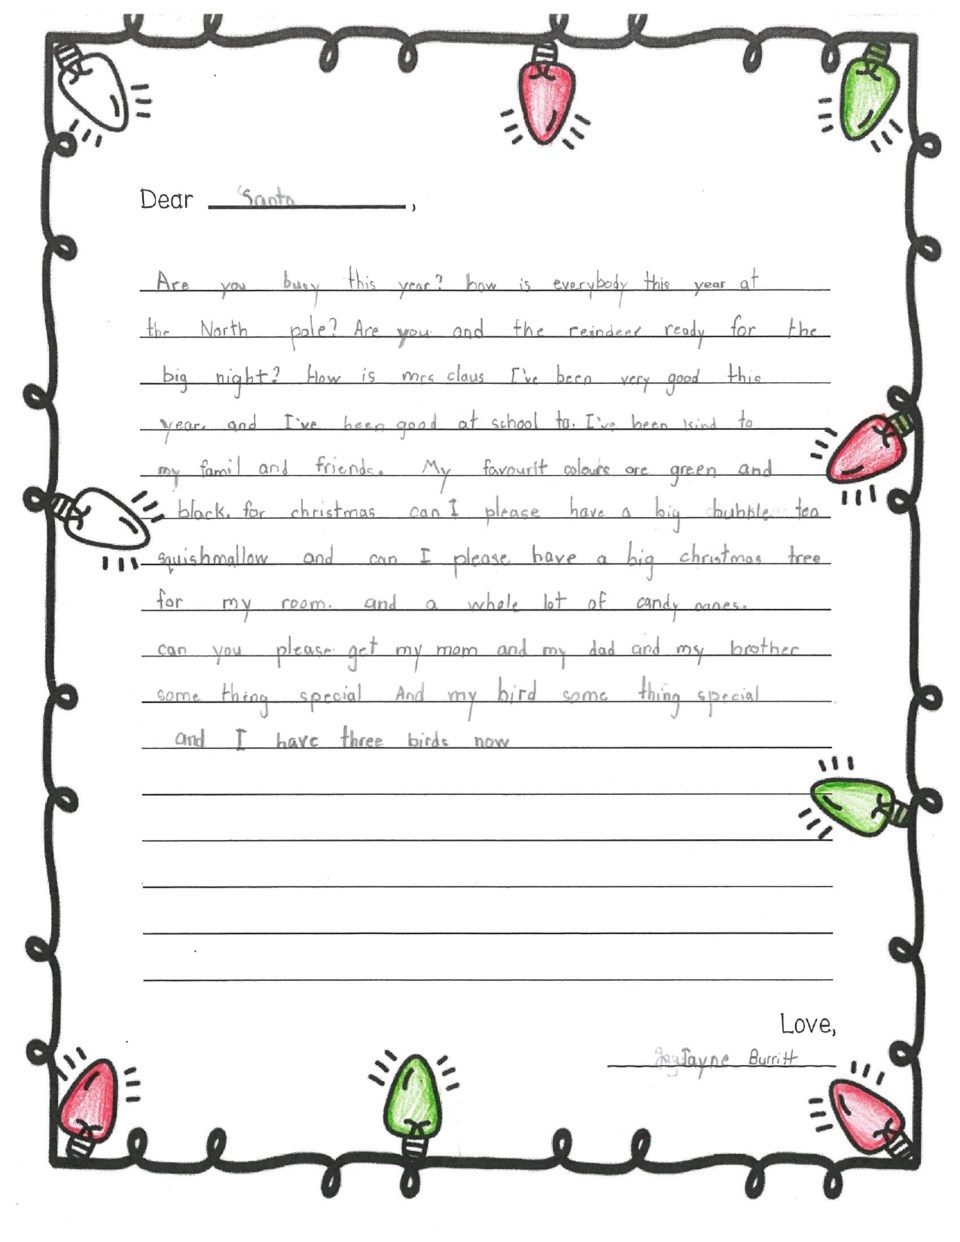 Dear Santa,
Are you busy this year? how is everybody this year at
the North pole? Are you and the reindeer ready for the
big night? How is mrs claus I've been very good this
year. and I've been good at school to. I've been kind to
my famil and friends. My favourit colours are green and
black. for christmas can I please have a big bubble tea
squishmallow and can I please have a big christmas tree
for my room. and a whole lot of candy canes.
can you please get my mom and my dad and my brother
some thing special And my bird some thing special
and I have three birds now
Love,
Jayne Burritt